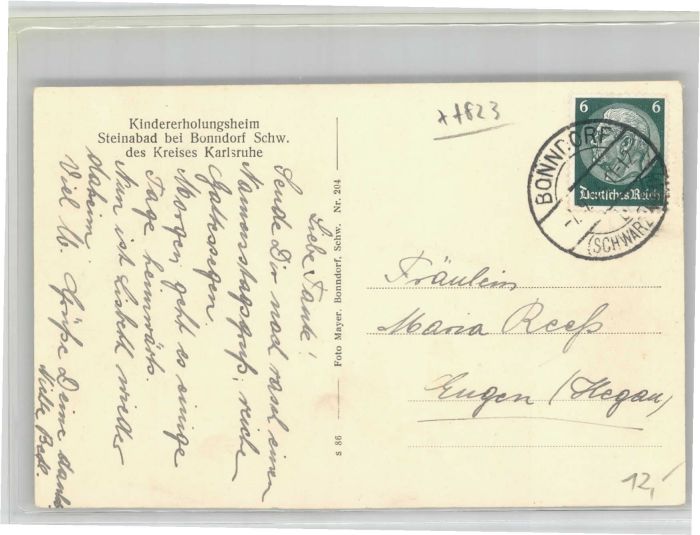 Kindererholungsheim
Steinabad bei Bonndorf Schw.
des Kreises Karlsruhe
Liebe Tante!
Sende Dir noch rasch einen
Namenstagsgruß, reichen
Gottessegen
Morgen geht es einige
Tage heimwärts.
Nun ist Lisbeth wieder
daheim.
Viel lb. Grüße Deine dankb.
Foto Mayer, Bonndorf. Schw. Nr. 204
s 86
x 7823
6 6
Deutsches Reich
BONNDORF
(SCHWARZW
Fräulein
Maria Reeß
Engen (Hegau)
12,